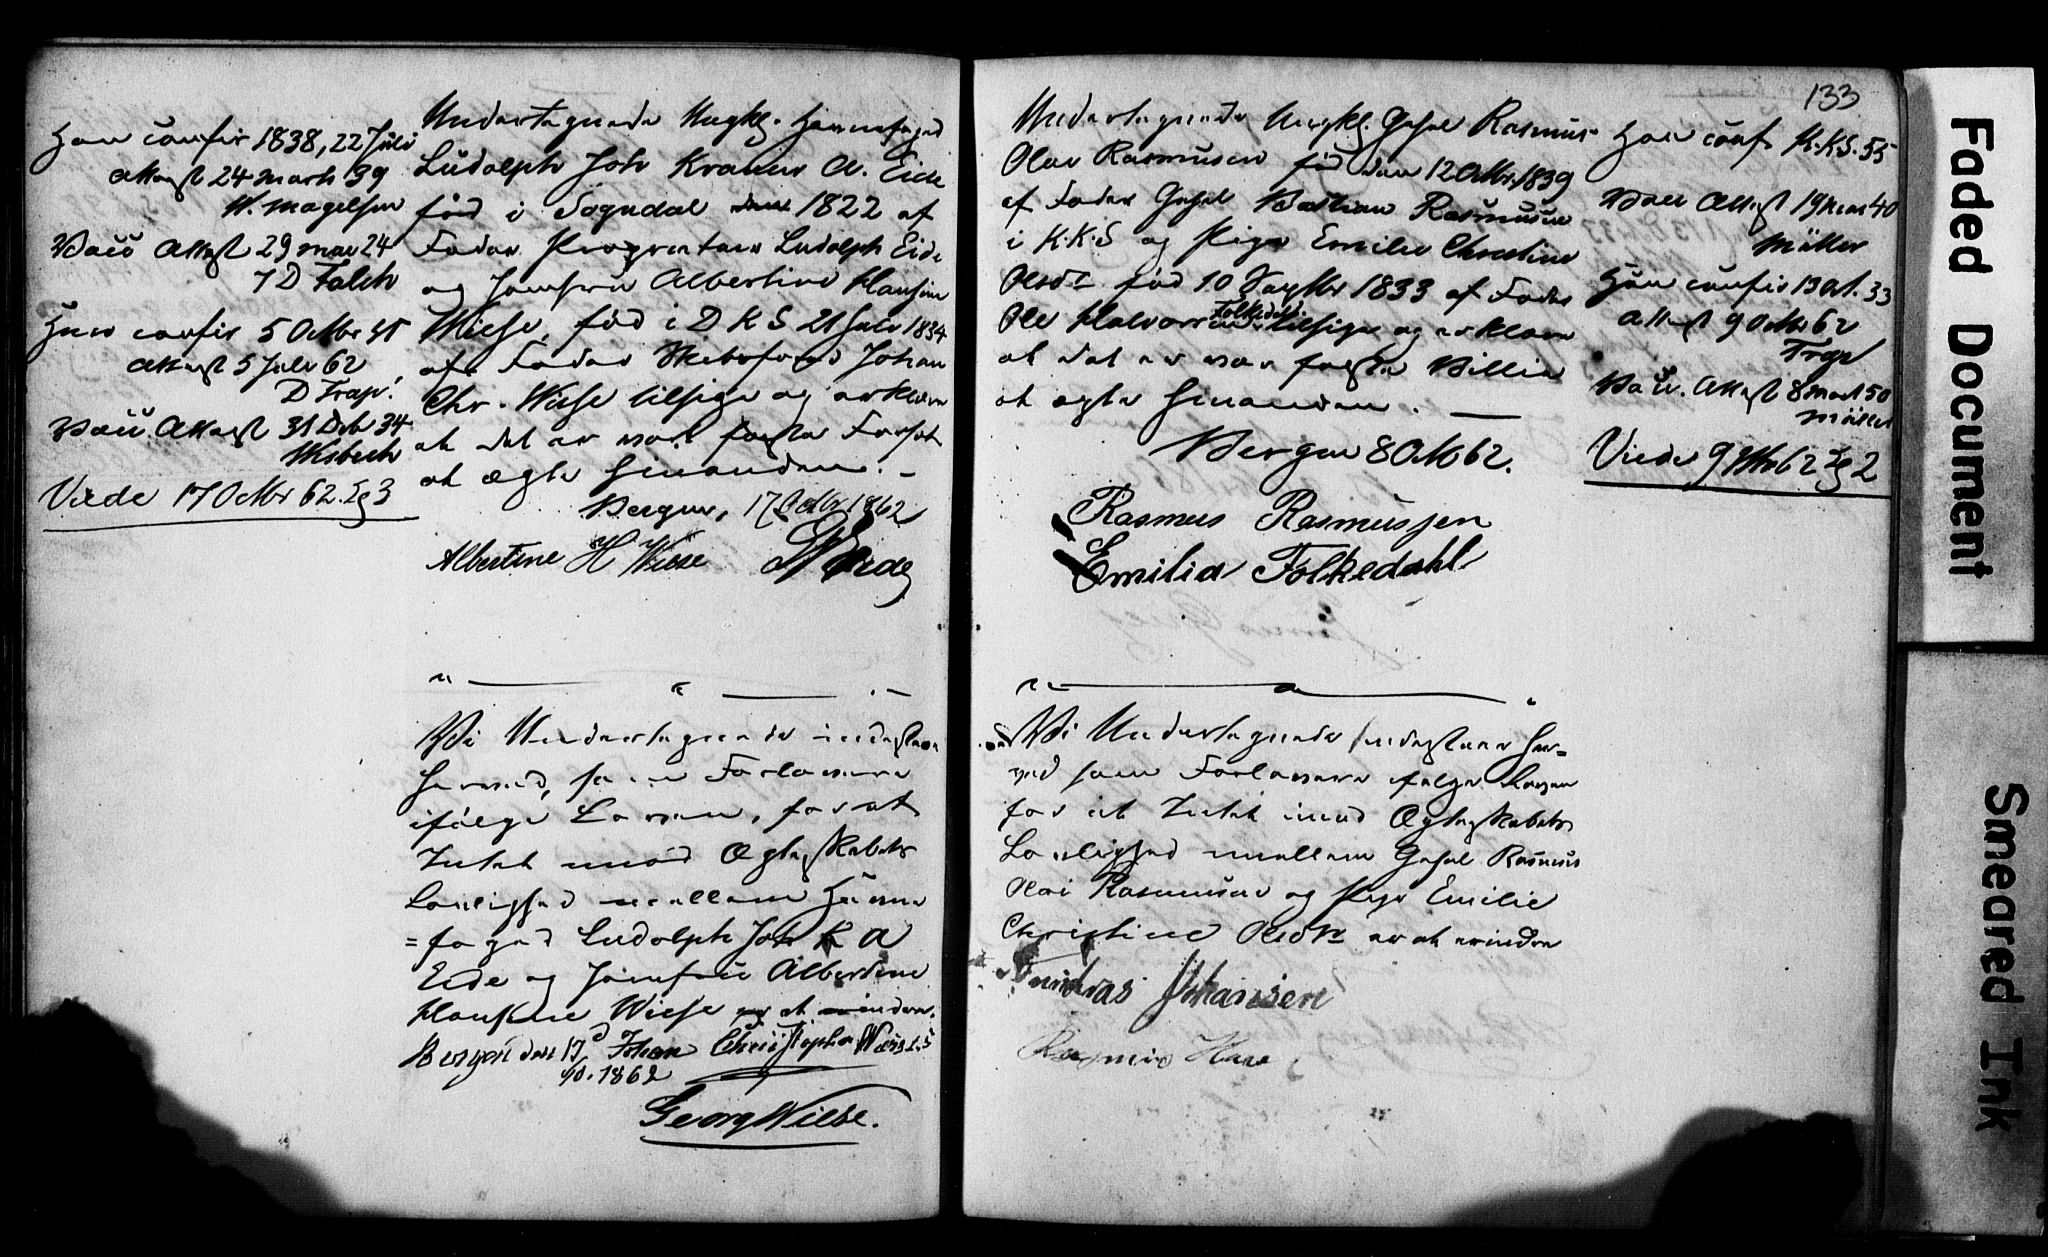 Han confir 1838, 22 Juli
Attest 24 Marts 39
W. Magelsen
Vacc Attest 29 mai 24
J D Falch
Hun confir 5 Octbr 51
Attest 5 Juli 62
D Trap.
Vacc. Attest 31 Dcbr 34
Wisbech
Viede 17 Octbr 62. Lg 3
Undertegnede Ungkl. Havnefoged
Ludolph Joh Kramer A. Eide
fød i Sogndal 1822 af
Fader Procurator Ludolph Eide
og Jomfru Albertine Hansine
Wiese, fød i D K S 21 Juli 1834
af Fader Skibsfører Johan
Chr. Wiese tilsige og erklære
at det er vor faste Forsæt
at ægte hinanden. -
Bergen, 17 Octbr 1862
Albertine H Wiese
Vi Undertegnede indestaae
herved, som Forlovere
ifølge Loven, for at
Intet mod Ægteskabets
Lovlighed mellem Havne
=foged Ludolph Joh K A
Eide og Jomfrue Albertine
Hansine Wiese er at erindre.
Bergen den 17d Johan Christopher Wiese
1862
Georg Wiese.
133
Undertegnede Ungkl. Gesel Rasmus
Olai Rasmusen fød den 12 Octbr. 1839
af Fader Gesel Bastian Rasmusen
i K.K.S og Pige Emilie Christine
Olsdr fød 10 1833 af Fader
Ole Halvorsen Folkedal tilsige og erklære
at det er vor faste Villie
at ægte hinanden.
Bergen 8 Octb 62.
Rasmus Rasmussen
Emilia Folkedahl
Han conf K.K.S. 55
Vacc Attest 19 mai 40
Møller
Hun confir 13 Oct. 33
Attest 9 Octbr 62
Trap
Vacc. Attest 8 mart 50
Møller
Viede 9 62 Lg 2
Vi Undertegnede indestaaer her=
ved som Forlovere ifølge Loven
for at Intet imod Ægteskabets
Lovlighed mellem Gesel Rasmus
Olai Rasmusen og Pige Emilie
Christine Olsdtr er at erindre
Andreas Johansen
Rasmus
Faded Document
Smeared Ink